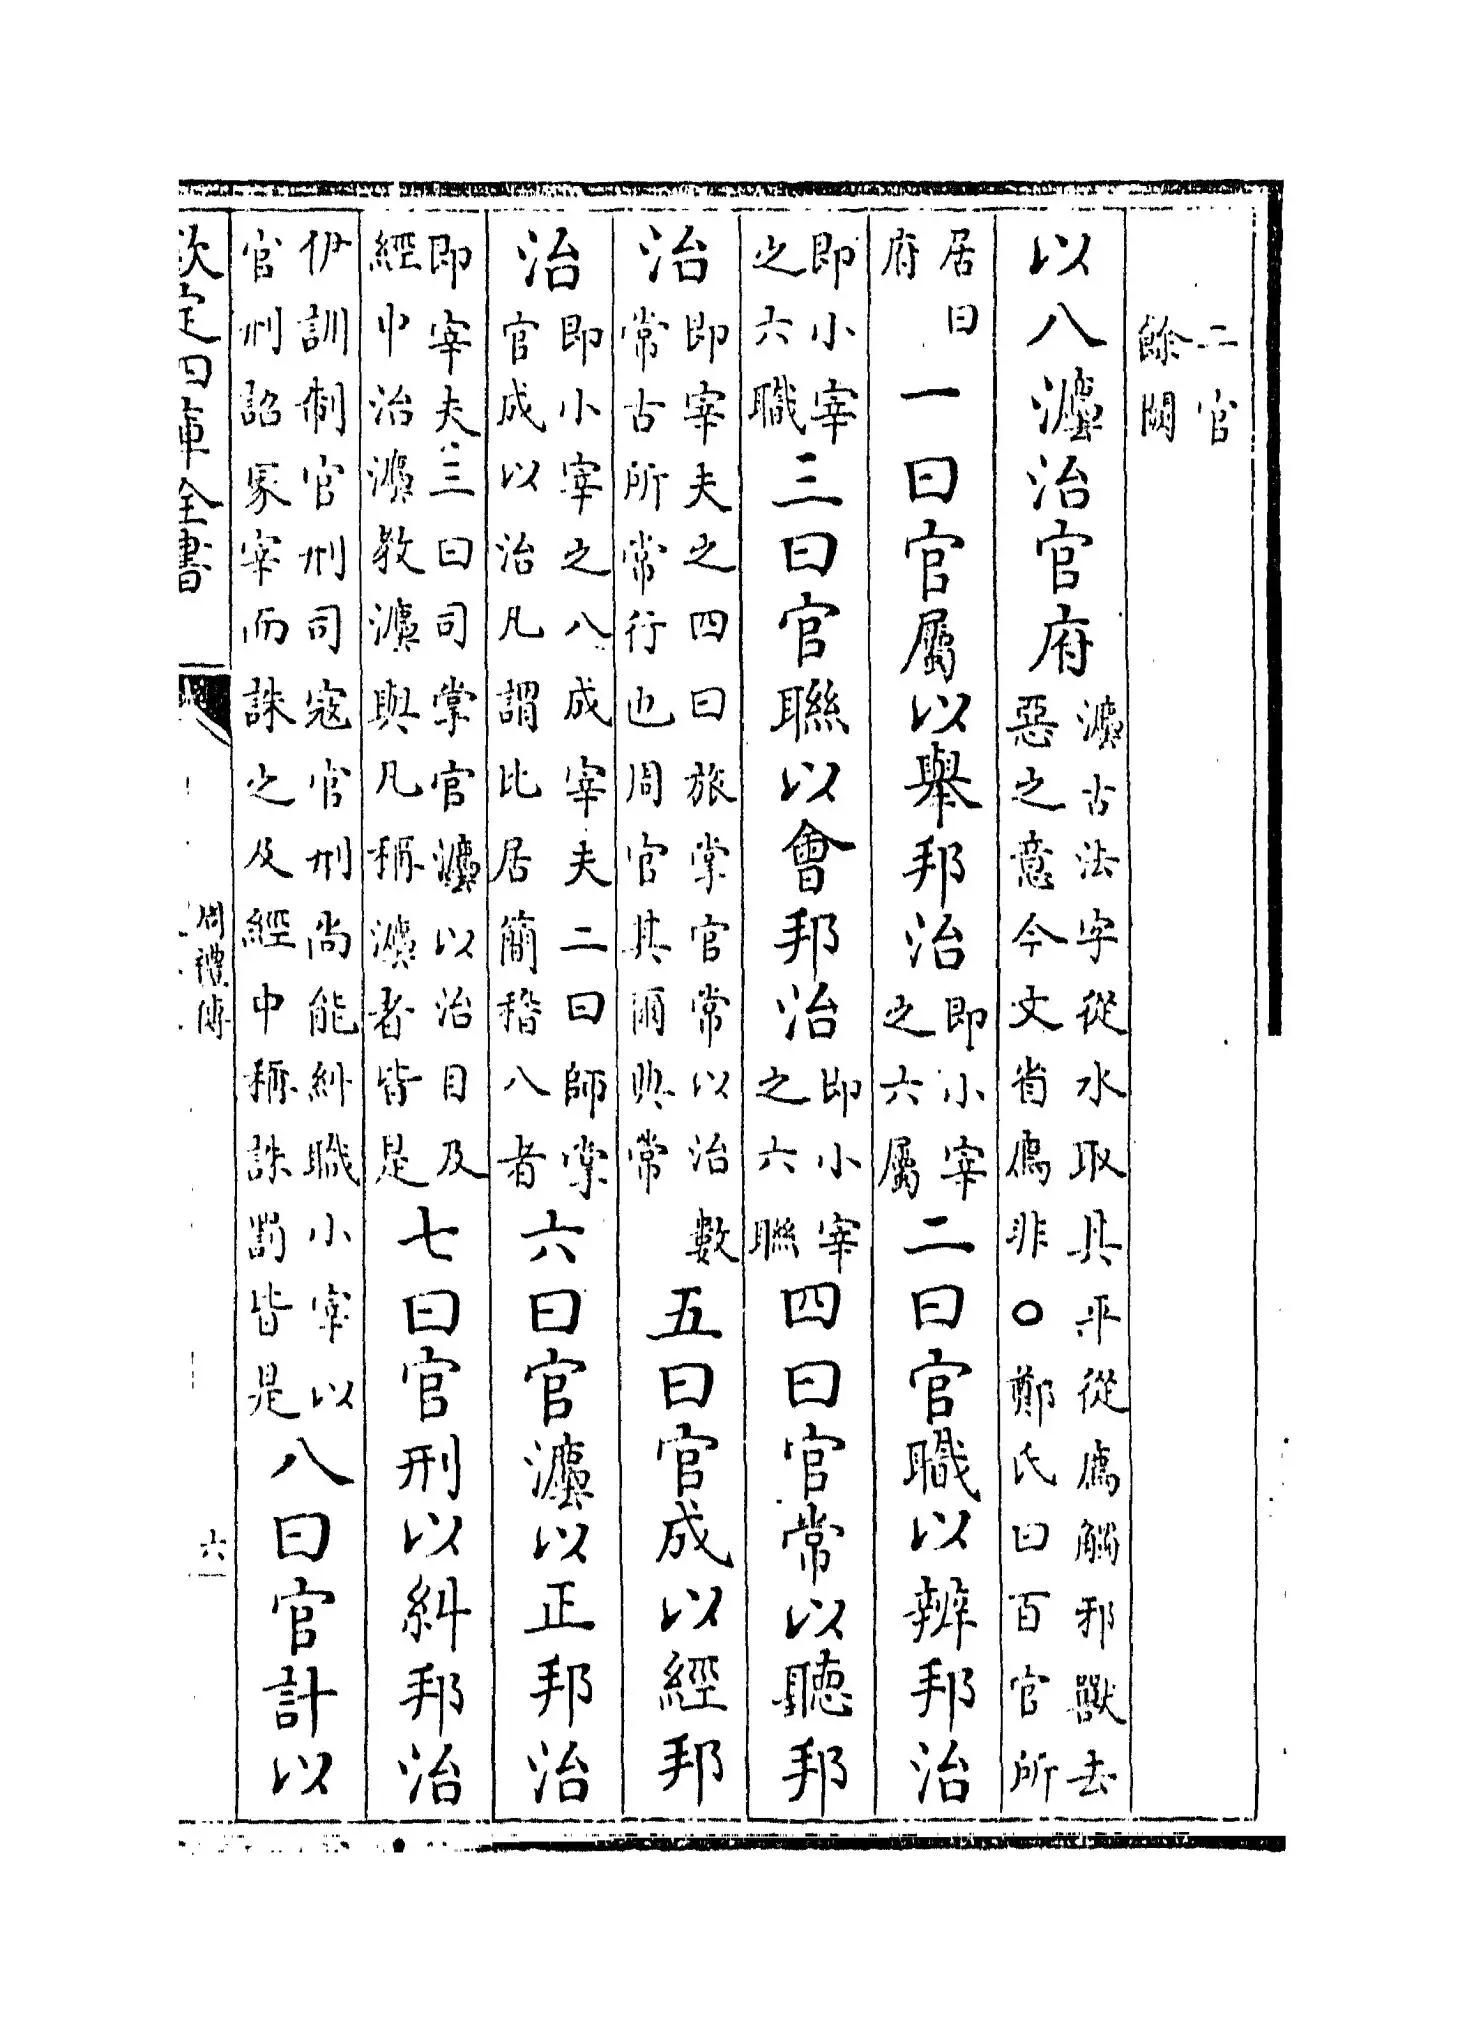 二官
餘闕
以八灋治官府
灋古法字從水取具平從廌觸邪獸去
惡之意今文省廌非〇鄭氏曰百官所
居曰
府
一曰官屬以舉邦治
即小宰
之六屬
二曰官職以辨邦治
即小宰
之六職
三曰官聯以會邦治
即小宰
之六聯
四曰官常以聽邦
治
即宰夫之四曰旅掌官常以治數
常古所常行也周官其爾典常
五曰官成以經邦
治
即小宰之八成宰夫二曰師掌
官成以治凡謂比居簡稽八者
六曰官灋以正邦治
即宰夫三曰司掌官灋以治目及
經中治灋教灋與凡稱灋者皆是
七曰官刑以糾邦治
伊訓制官刑司寇官刑尚能糾職小宰以
官刑詔冢宰而誅之及經中稱誅罰皆是
八曰官計以
欽定四庫全書
周禮傳
六